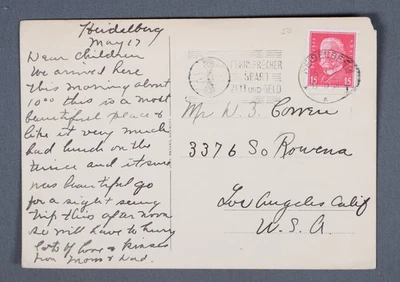 Heidelberg
May 17
Dear Children
We arrived here
this morning about
10:00 this is a most
beautiful place &
like it very much
had lunch on the
terrice and it sure
was beautiful go
for a sight seeing
trip this afternoon
so will have to hurry
lots of love & kisses
from Mom & Dad.
FERNSPRECHER
SPART
ZEIT UND GELD
HEIDELBERG
15 15
Mr W. J. Cowen
3376 So Rowena
Los Angeles Calif
U.S.A.